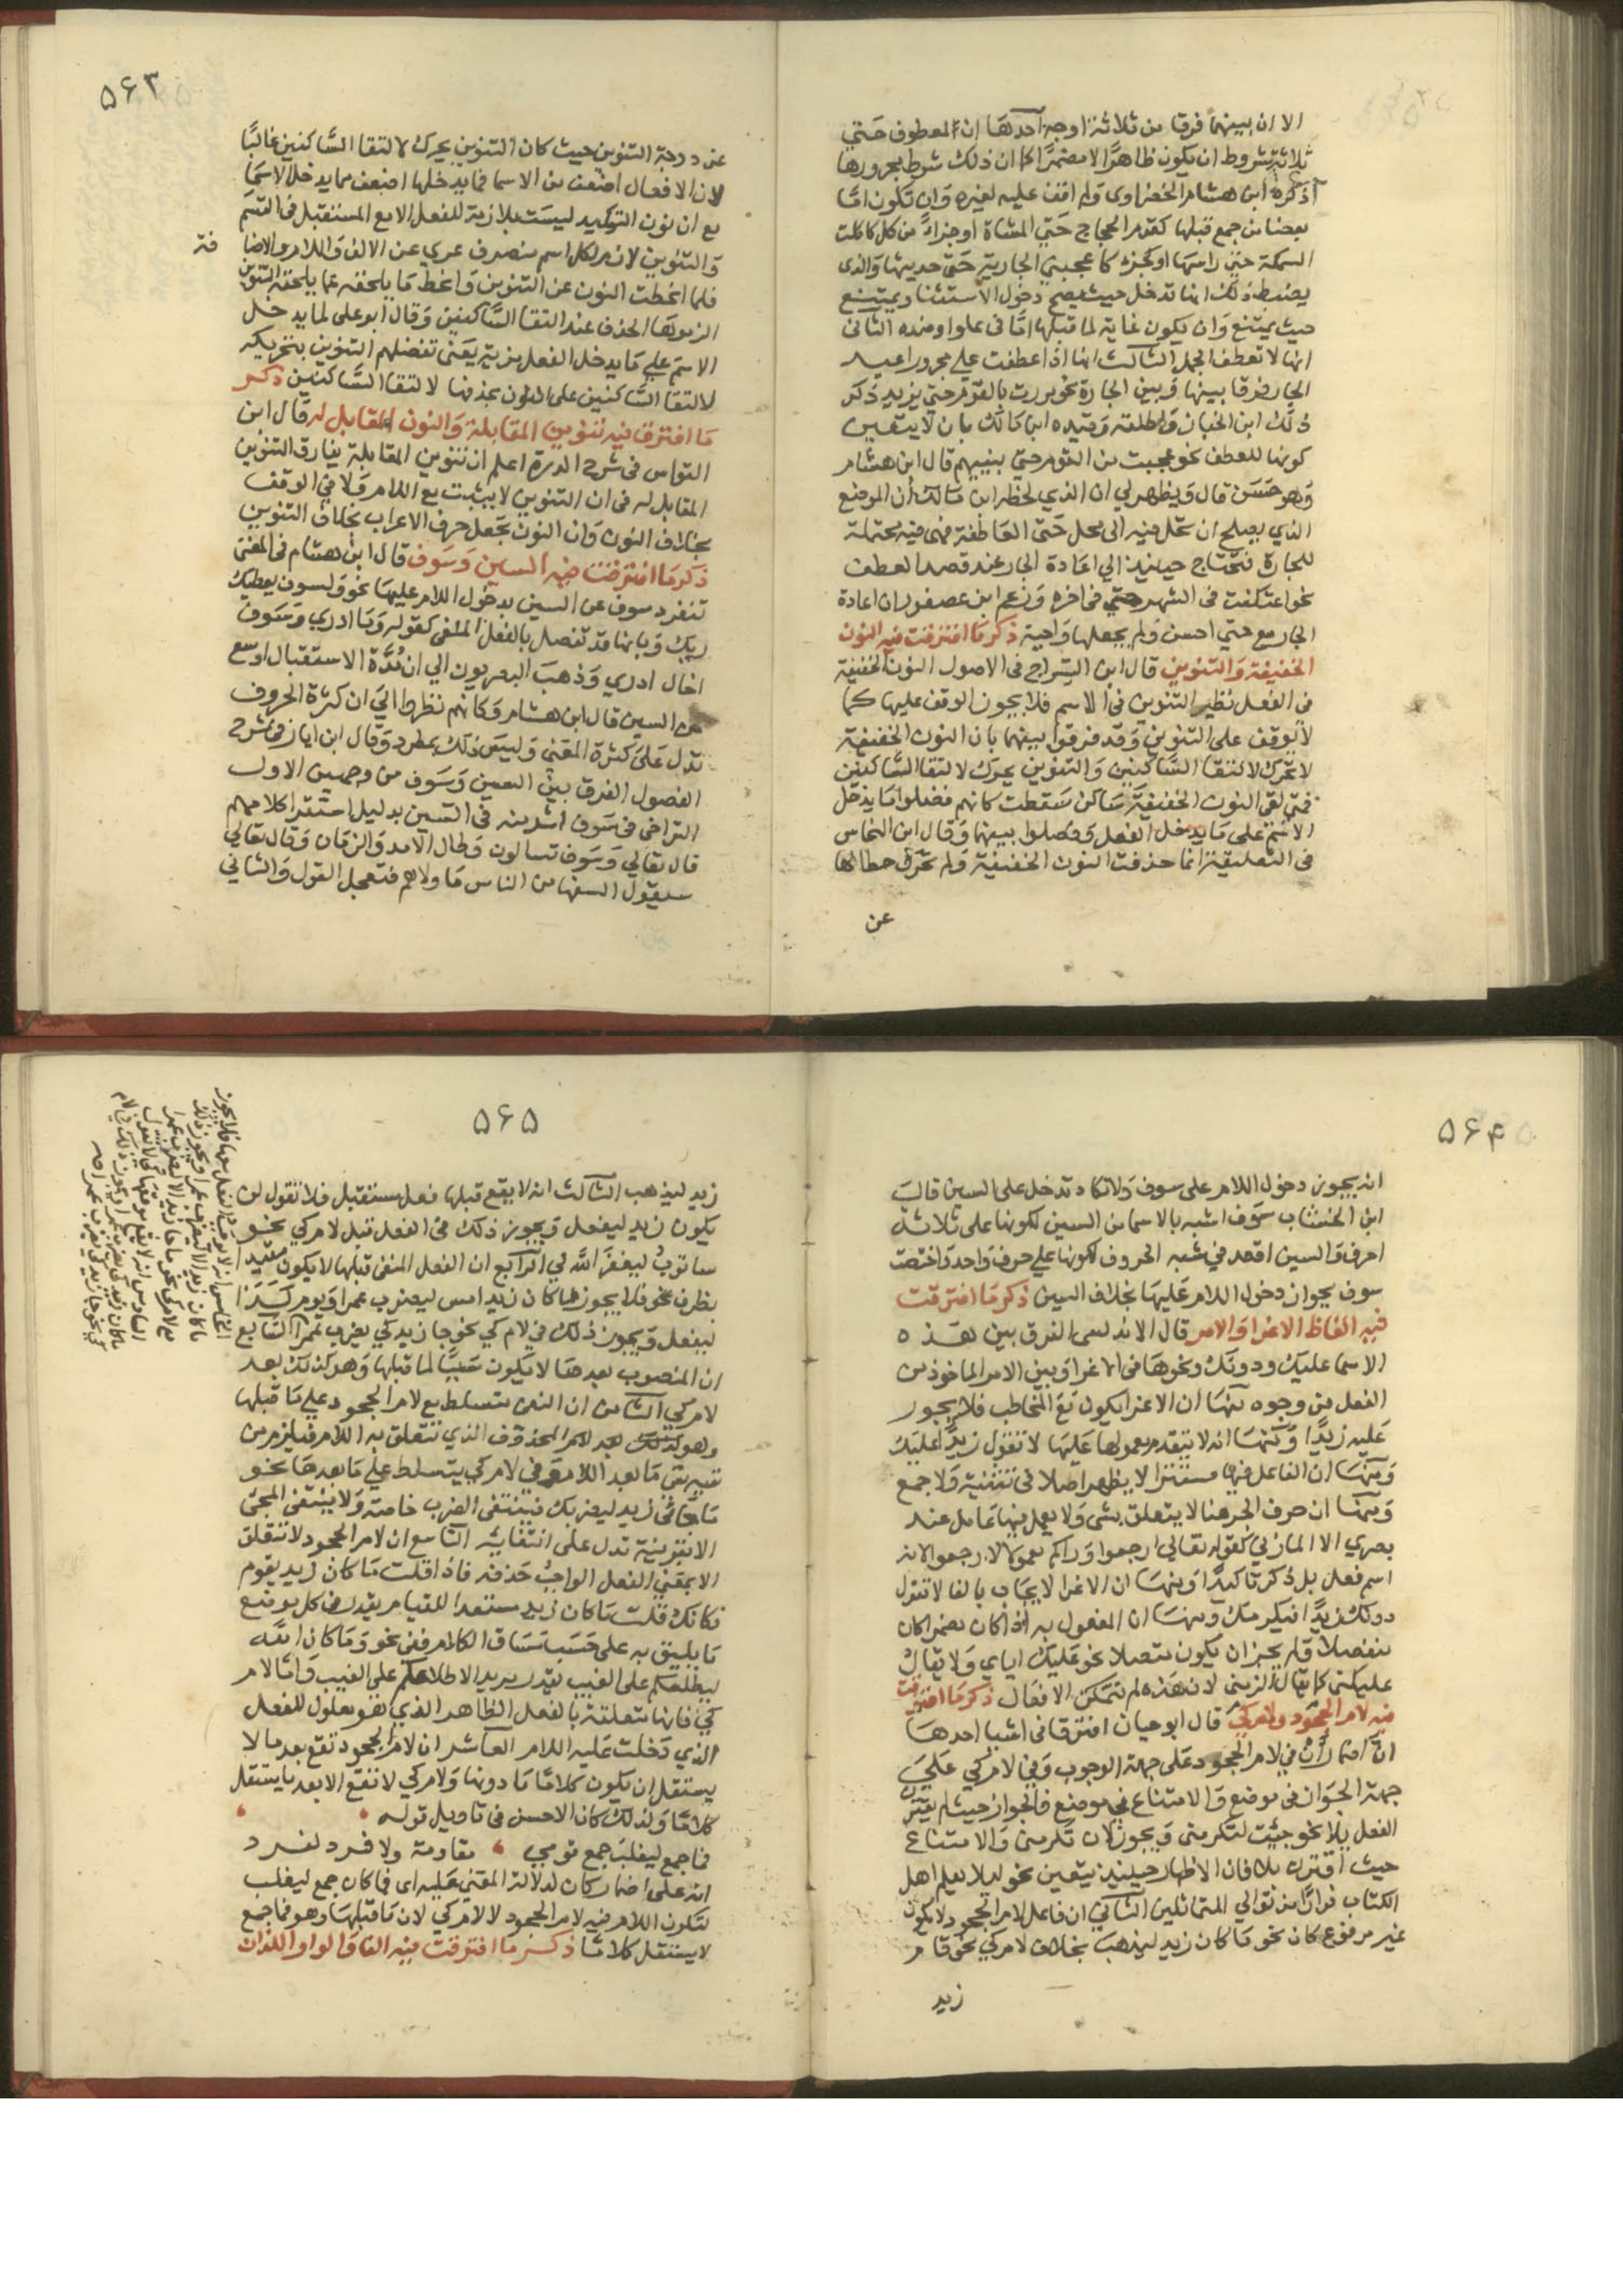 الا ان بينهما فرقا من ثلاثة اوجه احدها ان لمعطوف حتي
ثلاثة شروط ان يكون ظاهرًا لا مضمرًا كما ان ذلك شرط مجرورها
ذكره ابن هشام الخضراوى ولم اقف عليه لغيره وان تكون امّا
بعضا من جمع قبلها كقدم الحجاج حتي المشاة او جزاءً من كل كاكلت
السمكة حتي راسها او كجزء كاعجبتني الجارية حتي حديثها والذى
يضبط ذلك انها تدخل حيث يصح دخول الاستثنا ويمتنع
حيث يمتنع وان يكون غاية لما قبلها اما فى علو او ضده الثانى
انها لا تعطف الجمل الثالث انها اذا عطفت علي مجرور اعيد
الجار فرقا بينها وبين الجارة نحو مررت بالقوم حتي بزيد ذكر
ذلك ابن الخباز واطلقه وقيده ابن مالك بان لا يتعين
كونها للعطف نحو عجبت من القوم حتي بنيهم قال ابن هشام
وهو حسن قال ويظهر لي ان الذي لحظه ابن مالك ان الموضع
الذي يصلح ان تحل فيه الى محل حتى العاطفة فهى فيه محتملة
للجارة فتحتاج حينئذ الي اعادة الجار عند قصد العطف
نحو اعتكفت فى الشهر حتي فى اخره وزعم ابن عصفور ان اعادة
الجار مع حتي احسن ولم يجعلها واجبة ذكر ما افترقت فيه النون
الخفيفة والتنوين قال ابن السراج فى الاصول النون الخفيفة
فى الفعل نظير التنوين فى الاسم فلا يجوز الوقف عليها كما
لا يوقف على التنوين وقد فرقوا بينهما بان النون الخفيفة
لا تحرك لالتقا الساكنين والتنوين يحرك لالتقا الساكنين
فمتي لقى النون الخفيفة ساكن سقطت كانهم فضلوا ما يدخل
الاسم على ما يدخل الفعل وفصلوا بينهما وقال ابن النحاس
فى التعليقة انما حذفت النون الخفيفة ولم تحرك حطا لها
عن
٥٦٣
عن درجة التنوين حيث كان التنوين يحرك لالتقا الساكنين غالبًا
لان الافعال اضعف من الاسما فما يدخلها اضعف مما يدخل الاسما
مع ان نون التوكيد ليست بلازمة للفعل الا مع المستقبل فى القسم
والتنوين لازم لكل اسم منصرف عري عن الالف واللام والاضا
فة
فلما انحطت النون عن التنوين وانحط ما يلحقه عما يلحقه التنوين
الزموها الحذف عند التقا الساكنين وقال ابو على لما يدخل
الاسم علي ما يدخل الفعل مزية يعنى تفضلهم التنوين بتحريكه
لالتقا الساكنين على النون بحذفها لالتقا الساكنين ذكر
ما افترق فيه تنوين المقابلة والنون المقابل له قال ابن
القواس فى شرح الدرة اعلم ان تنوين المقابلة يفارق التنوين
المقابل له فى ان التنوين لا يثبت مع اللام ولا فى الوقف
بخلاف النون وان النون تجعل حرف الاعراب بخلاف التنوين
ذكر ما افترقت فيه السين وسوف قال ابن هشام فى المغنى
تنفرد سوف عن السين بدخول اللام عليها نحو ولسوف يعطيك
ربك وبانها قد تفصل بالفعل الملغى كقوله وما ادري وسوف
اخال ادري وذهب البصريون الي ان مدة الاستقبال اوسع
من السين قال ابن هشام وكانهم نظروا الي ان كثرة الحروف
تدل على كثرة المعنى وليس ذلك بمطرد وقال ابن اياز فى شرح
الفصول الفرق بين السين وسوف من وجهين الاول
التراخى فى سوف اشد منه فى السين بدليل استقرا كلامهم
قال تعالي وسوف تسالون وطال الامد والزمان وقال تعالي
سيقول السفها من الناس ما ولاهم فتعجل القول والثاني
٥٦٤
انه يجوز دخول اللام على سوف ولا تكاد تدخل على السين قال
ابن الخشاب سوف اشبه بالاسما من السين لكونها على ثلاثة
احرف والسين اقعد في شبه الحروف لكونها علي حرف واحد واختصت
سوف بجواز دخول اللام عليها بخلاف السين ذكر ما افترقت
فيه الفاظ الاغرا والامر قال الاندلسى الفرق بين هذه
الاسما عليك ودونك ونحوها فى الاغرا وبين الامر الماخوذ من
الفعل من وجوه منها ان الاغرا يكون مع المخاطب فلا يجوز
عليه زيدًا ومنها انه لا يتقدم معمولها عليها لا تقول زيدًا عليك
ومنها ان الفاعل فيها مستتر لا يظهر اصلا فى تثنية ولا جمع
ومنها ان حرف الجر هنا لا يتعلق بشى ولا يعمل فيها عامل عند
بصري الا المازني كقوله تعالي ارجعوا وراكم معمولا لارجعوا لانه
اسم فعل بل ذكر تاكيدًا ومنها ان الاغرا لا يجاب بالفا لا تقول
دونك زيدًا فيكرمك ومنها ان المفعول به اذا كان مضمرا كان
منفصلا ولم يجز ان يكون متصلا نحو عليك اياي ولا يقال
عليكنى كما يقال الزمنى لان هذه لم تتمكن الافعال ذكر ما افترقت
فيه لام الجحود ولام كي قال ابو حيان افترقا فى اشيا احدها
ان اضمار ان في لام الجحود على جهة الوجوب وفي لام كي علي
جهة الجواز فى موضع والامتناع في موضع فالجواز حيث لم يقترن
الفعل بلا نحو جيت لتكرمنى ويجوز لان تكرمنى والامتناع
حيث اقترن بلا فان الاظهار حينيذ يتعين نحو ليلا يعلم اهل
الكتاب فرارًا من توالي المتماثلين الثاني ان فاعل لام الجحود لا يكون
غير مرفوع كان نحو ما كان زيد ليذهب بخلاف لام كي نحو قام
زيد
٥٦٥
زيد ليذهب الثالث انه لا يقع قبلها فعل مستقبل فلا تقول لن
يكون زيد ليفعل ويجوز ذلك فى الفعل قبل لام كي نحو
ساتوب ليغفر الله لي الرابع ان الفعل المنفى قبلها لا يكون مقيدا
بظرف نحو فلا يجوز ما كان زيد امس ليضرب عمرا ويوم كذا
ليفعل ويجوز ذلك في لام كي نحو جا زيد كي يضرب عمرا السابع
ان المنصوب بعدها لا يكون سببًا لما قبلها وهو كذلك بعد
لام كي الثامن ان النفى متسلط مع لام الجحود علي ما قبلها
وهو المحذوف الذي تتعلق به اللام فيلزم من
نفيه نفى ما بعد اللام وفي لام كي يتسلط علي ما بعدها نحو
ما جا فى زيد ليضربك فينتفى الضرب خاصة ولا ينتفى المجى
الا بقرينة تدل على انتفايه التاسع ان لام الجحود لا تتعلق
الا بمعني الفعل الواجب حذفه فاذا قلت ما كان زيد يقوم
فكانك قلت ما كان زيد مستعدا للقيام يقدر فى كل موضع
ما يليق به على حسب مساق الكلام ففى نحو وما كان الله
ليطلعكم على الغيب يقدر يريد لاطلاعكم على الغيب واما لام
كي فانها متعلقة بالفعل الظاهر الذي هو معلول للفعل
الذي دخلت عليه اللام العاشر ان لام الجحود تقع بعد ما لا
يستقل ان يكون كلامًا ما دونها ولام كي لا تقع الا بعد ما يستقل
كلامًا ولذلك كان الاحسن فى تاويل قوله
فما جمع ليغلب جمع قومي مقاومة ولا فرد لفرد
انه على اضمار كان لدلالة المعنى عليه اى فما كان جمع ليغلب
لتكون اللام فيه لام الجحود لا لام كي لان ما قبلها وهو فما جمع
لا يستقل كلامًا ذكر ما افترقت فيه الفا والواو اللذان